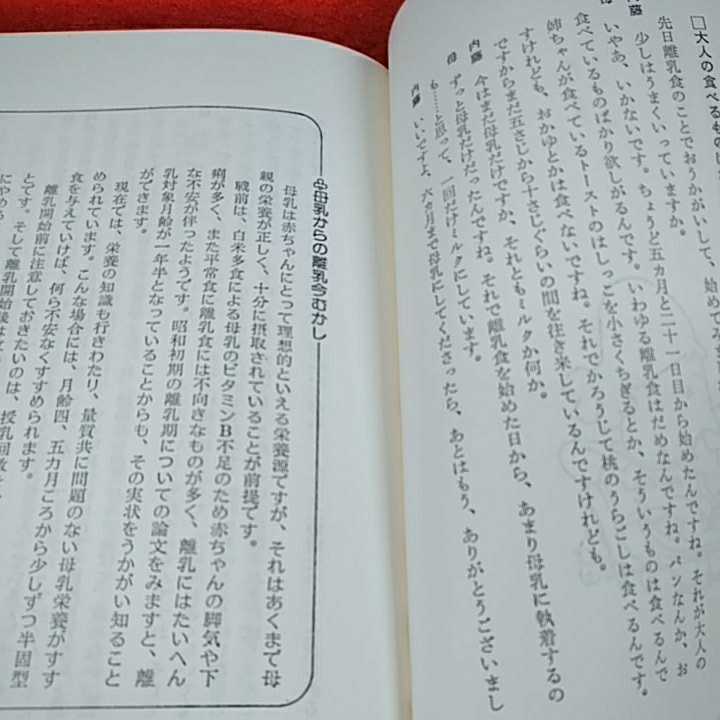 □大人の食べるもの
先日離乳食のことでおうかがいして、始めてみ
内藤　少しはうまくいっていますか。
母　いやあ、いかないです。ちょうど五カ月と二十一日目から始めたんですね。それが大人の
食べているものばかり欲しがるんです。いわゆる離乳食はだめなんですね。パンなんか、お
姉ちゃんが食べているトーストのはしっこを小さくちぎるとか、そういうものは食べるんで
すけれども、おかゆとかは食べないですね。それでかろうじて桃のうらごしは食べるんです。
ですからまだ五さじから十さじぐらいの間を往き来しているんですけれども。
内藤　今はまだ母乳だけですか、それともミルクか何か。
母　ずっと母乳だけだったんですね。それで離乳食を始めた日から、あまり母乳に執着するの
も……と思って、一回だけミルクにしています。
内藤　いいですよ、六カ月まで母乳にしてくださったら、あとはもう、ありがとうございまし
母乳からの離乳今むかし
母乳は赤ちゃんにとって理想的といえる栄養源ですが、それはあくまで母
親の栄養が正しく、十分に摂取されていることが前提です。
戦前は、白米多食による母乳のビタミンB不足のため赤ちゃんの脚気や下
痢が多く、また平常食に離乳食には不向きなものが多く、離乳にはたいへん
な不安が伴ったようです。昭和初期の離乳期についての論文をみますと、離
乳対象月齢が一年半となっていることからも、その実状をうかがい知ること
ができます。
現在では、栄養の知識も行きわたり、量質共に問題のない母乳栄養がすす
められています。こんな場合には、月齢四、五カ月ごろから少しずつ半固型
食を与えていけば、何ら不安なくすすめられます。
離乳開始前に注意しておきたいのは、授乳回数を
とです。そして離乳開始後は
にやめる